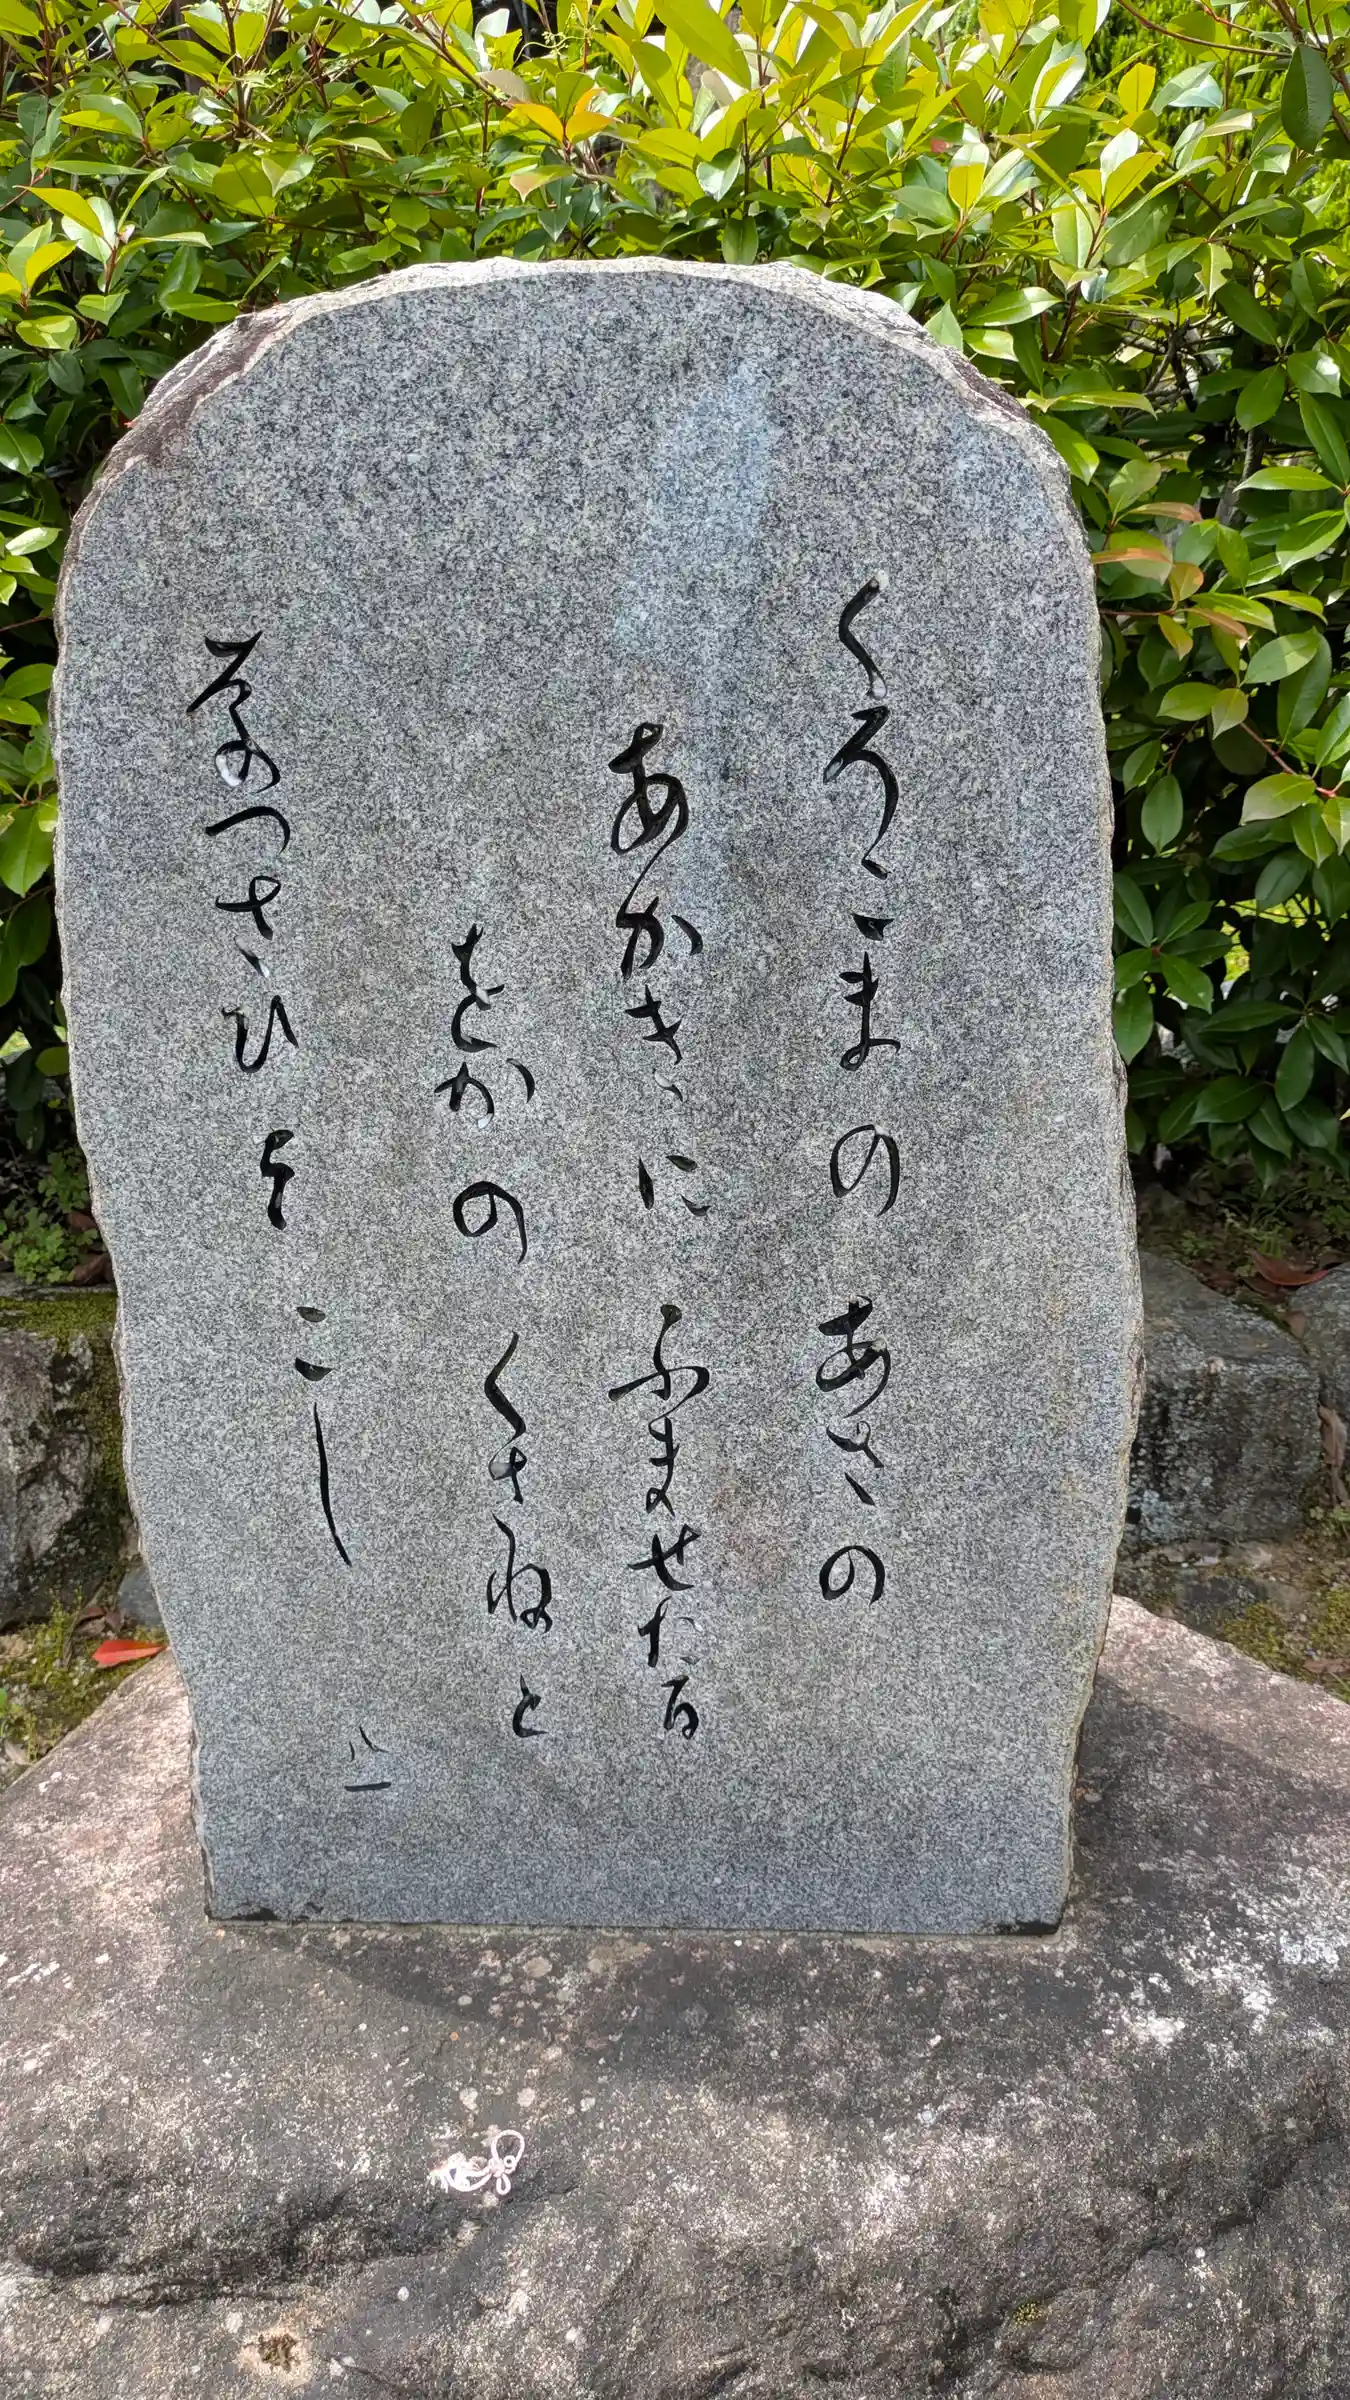 くろこまのあさの
あかきにふませたる
をかのくさねと
なつさひそこし
八一